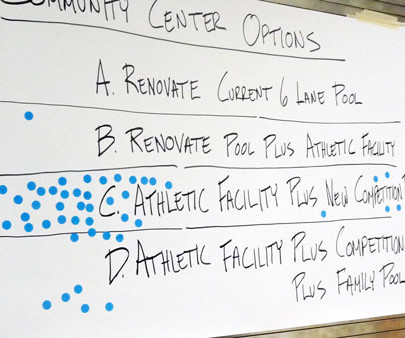 COMMUNITY CENTER OPTIONS
A. RENOVATE CURRENT 6 LANE POOL
B. RENOVATE POOL PLUS ATHLETIC FACILITY
C. ATHLETIC FACILITY PLUS NEW COMPETITION
D. ATHLETIC FACILITY PLUS COMPETITION
PLUS FAMILY POOL